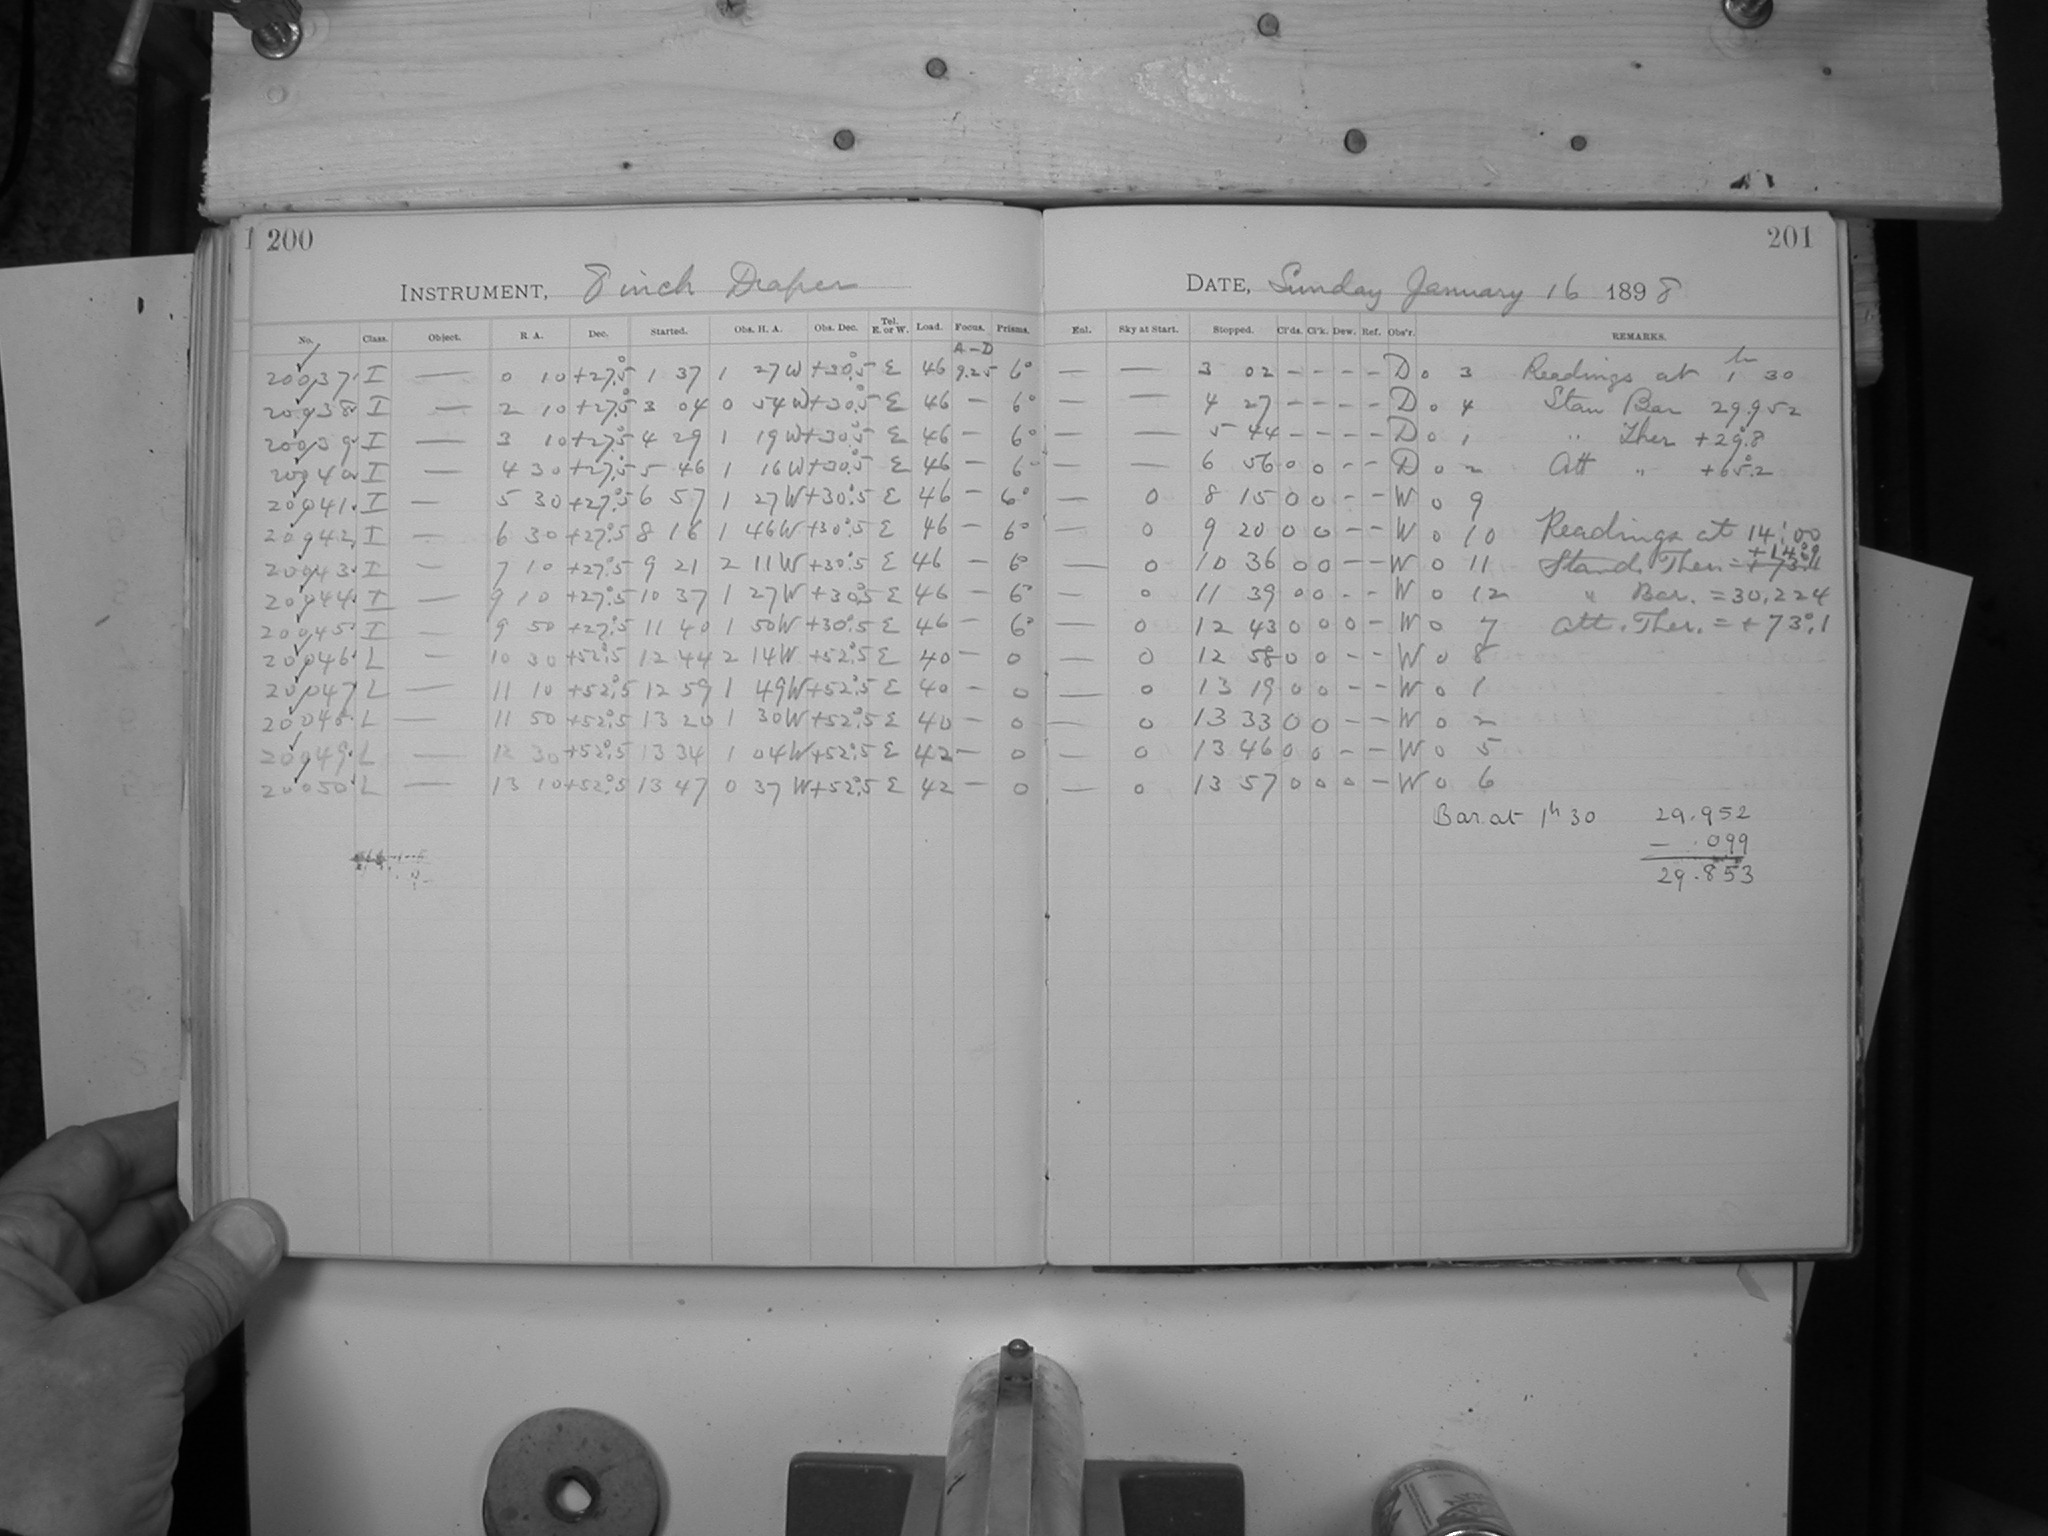 200
INSTRUMENT, 8 inch Draper
No. Class. Object. R. A. Dec. Started. Obs. H. A. Obs. Dec. Tel. E. or W. Load. Focus. Prisms.
A-D
20037 I — 0 10 +27°.5 1 37 1 27W +30°.5 E 46 9.25 6°
20038 I — 2 10 +27°.5 3 04 0 54W +30°.5 E 46 — 6°
20039 I — 3 10 +27°.5 4 29 1 19W +30°.5 E 46 — 6°
20040 I — 4 30 +27°.5 5 46 1 16W +30°.5 E 46 — 6°
20041 I — 5 30 +27°.5 6 57 1 27W +30°.5 E 46 — 6°
20042 I — 6 30 +27°.5 8 16 1 46W +30°.5 E 46 — 6°
20043 I — 7 10 +27°.5 9 21 2 11W +30°.5 E 46 — 6°
20044 I — 9 10 +27°.5 10 37 1 27W +30°.5 E 46 — 6°
20045 I — 9 50 +27°.5 11 40 1 50W +30°.5 E 46 — 6°
20046 L — 10 30 +52°.5 12 44 2 14W +52°.5 E 40 — 0
20047 L — 11 10 +52°.5 12 59 1 49W +52°.5 E 40 — 0
20048 L — 11 50 +52°.5 13 20 1 30W +52°.5 E 40 — 0
20049 L — 12 30 +52°.5 13 34 1 04W +52°.5 E 42 — 0
20050 L — 13 10 +52°.5 13 47 0 37W +52°.5 E 42 — 0
201
DATE, Sunday January 16 1898
Enl. Sky at Start. Stopped. Cl'ds. Cl'k. Dew. Ref. Obs'r. REMARKS.
— — 3 02 - - - - D 0 3 Readings at 1h 30
— — 4 27 - - - - D 0 4 Stan Bar 29.952
— — 5 44 - - - - D 0 1 " Ther +29°.8
— — 6 56 0 0 - - D 0 2 Att " +65°.2
— 0 8 15 0 0 - - W 0 9
— 0 9 20 0 0 - - W 0 10 Readings at 14:00
+14°.9
— 0 10 36 0 0 - - W 0 11 Stand. Ther. = +73°.1
— 0 11 39 0 0 - - W 0 12 " Bar. = 30.224
— 0 12 43 0 0 0 - W 0 7 Att. Ther. = +73°.1
— 0 12 58 0 0 - - W 0 8
— 0 13 19 0 0 - - W 0 1
— 0 13 33 0 0 - - W 0 2
— 0 13 46 0 0 - - W 0 5
— 0 13 57 0 0 0 - W 0 6
Bar. at 1h 30 29.952
- .099
29.853